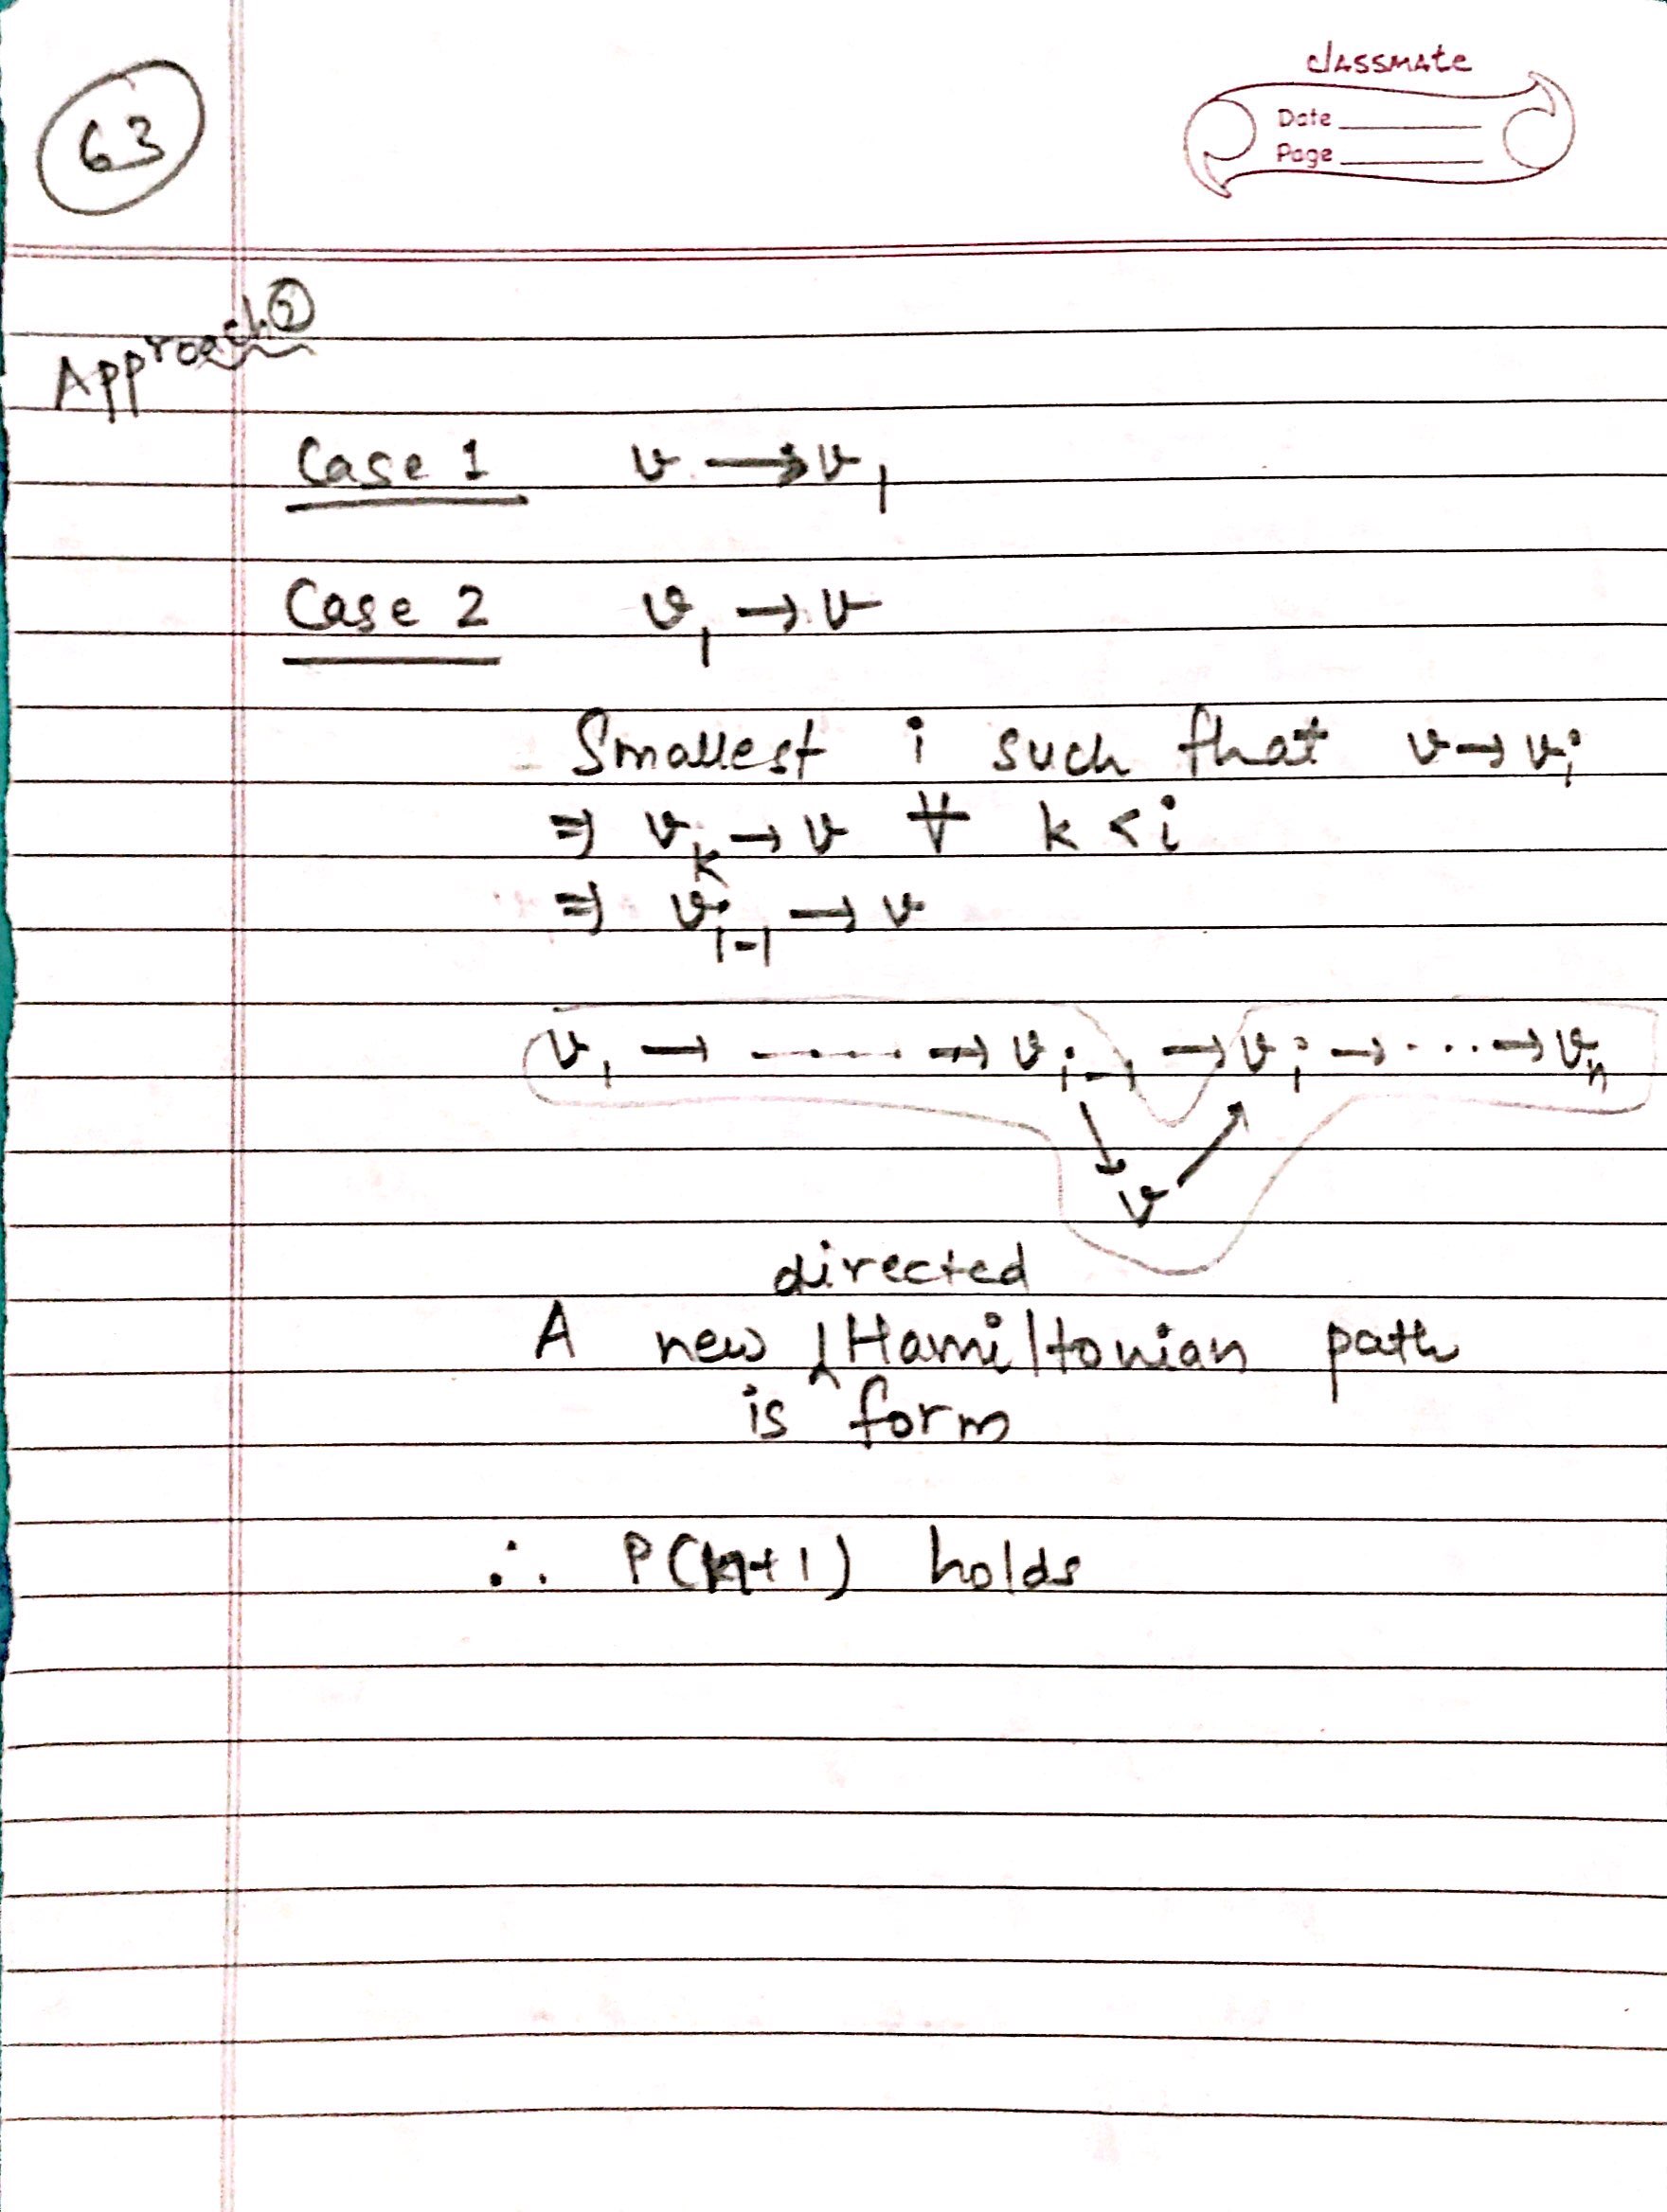 63
classmate
Date
Page
Approach ②
Case 1 v → v₁
Case 2 v₁ → v
Smallest i such that v → vᵢ
⇒ vₖ → v ∀ k < i
⇒ vᵢ₋₁ → v
v₁ → ..... → vᵢ₋₁ → vᵢ → ... → vₙ
v
directed
A new ⁁ Hamiltonian path
is form
∴ P(n+1) holds